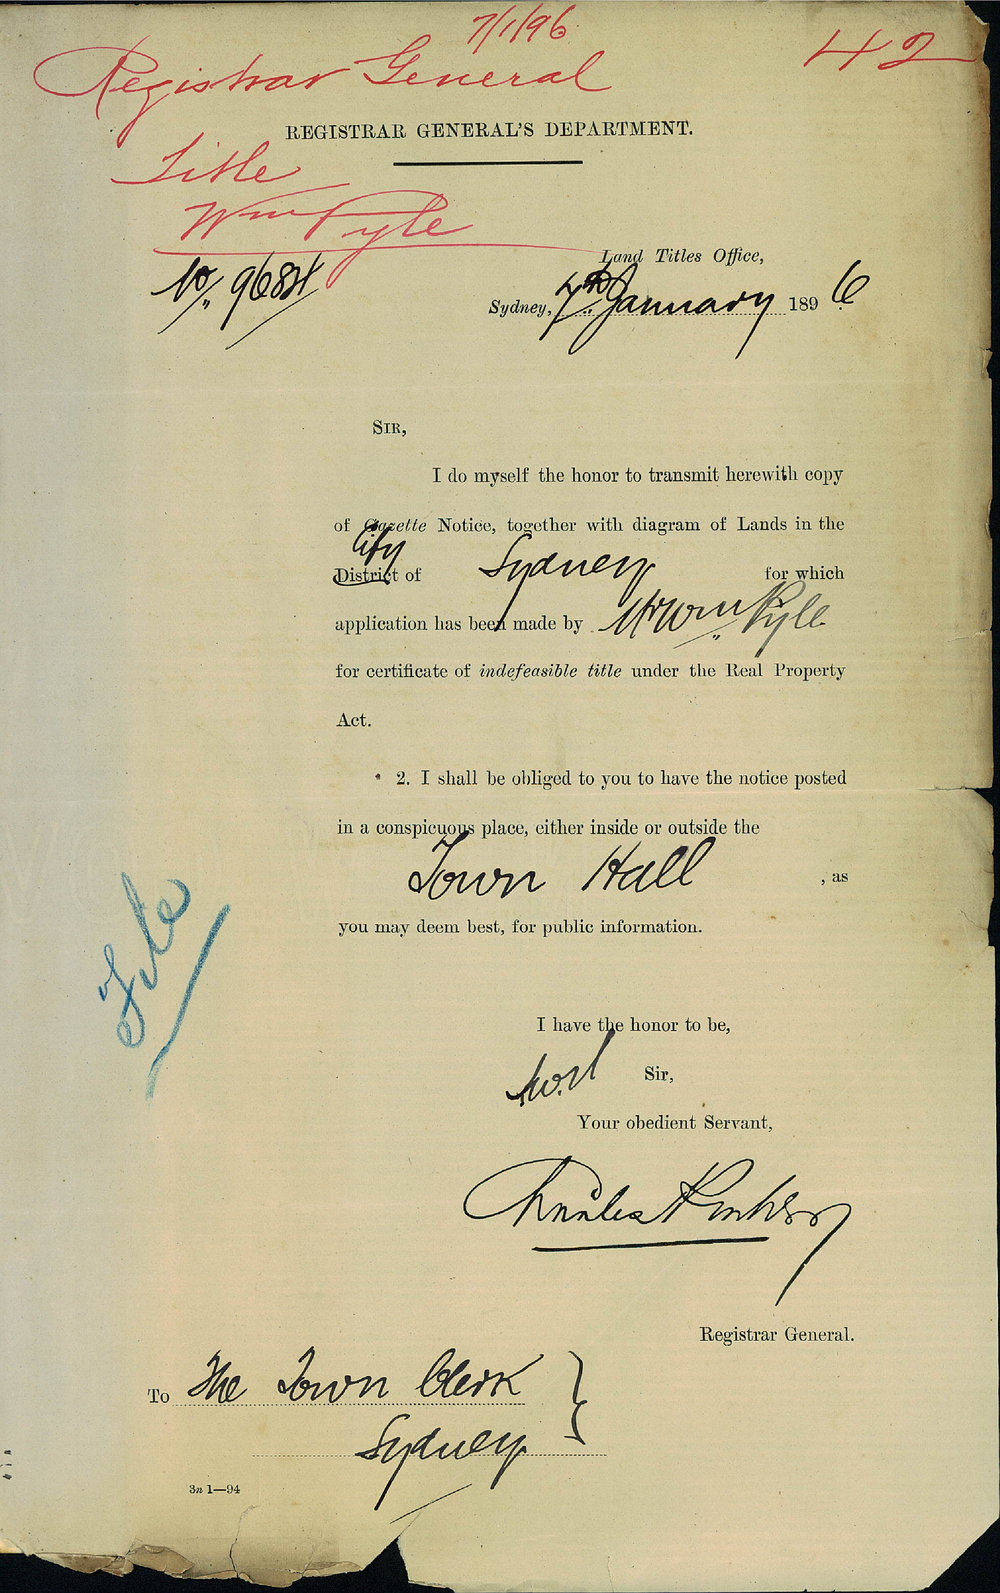 7/1/96
42
Registrar General
REGISTRAR GENERAL'S DEPARTMENT.
Title
Wm Pyle
Land Titles Office,
No. 9684
Sydney, 7th January 1896
SIR,
I do myself the honor to transmit herewith copy
of Gazette Notice, together with diagram of Lands in the
City
District of Sydney for which
application has been made by Mr Wm Pyle
for certificate of indefeasible title under the Real Property
Act.
2. I shall be obliged to you to have the notice posted
in a conspicuous place, either inside or outside the
Town Hall , as
you may deem best, for public information.
File
I have the honor to be,
Sir,
Your obedient Servant,
Charles
Registrar General.
To The Town Clerk
Sydney
3n 1—94